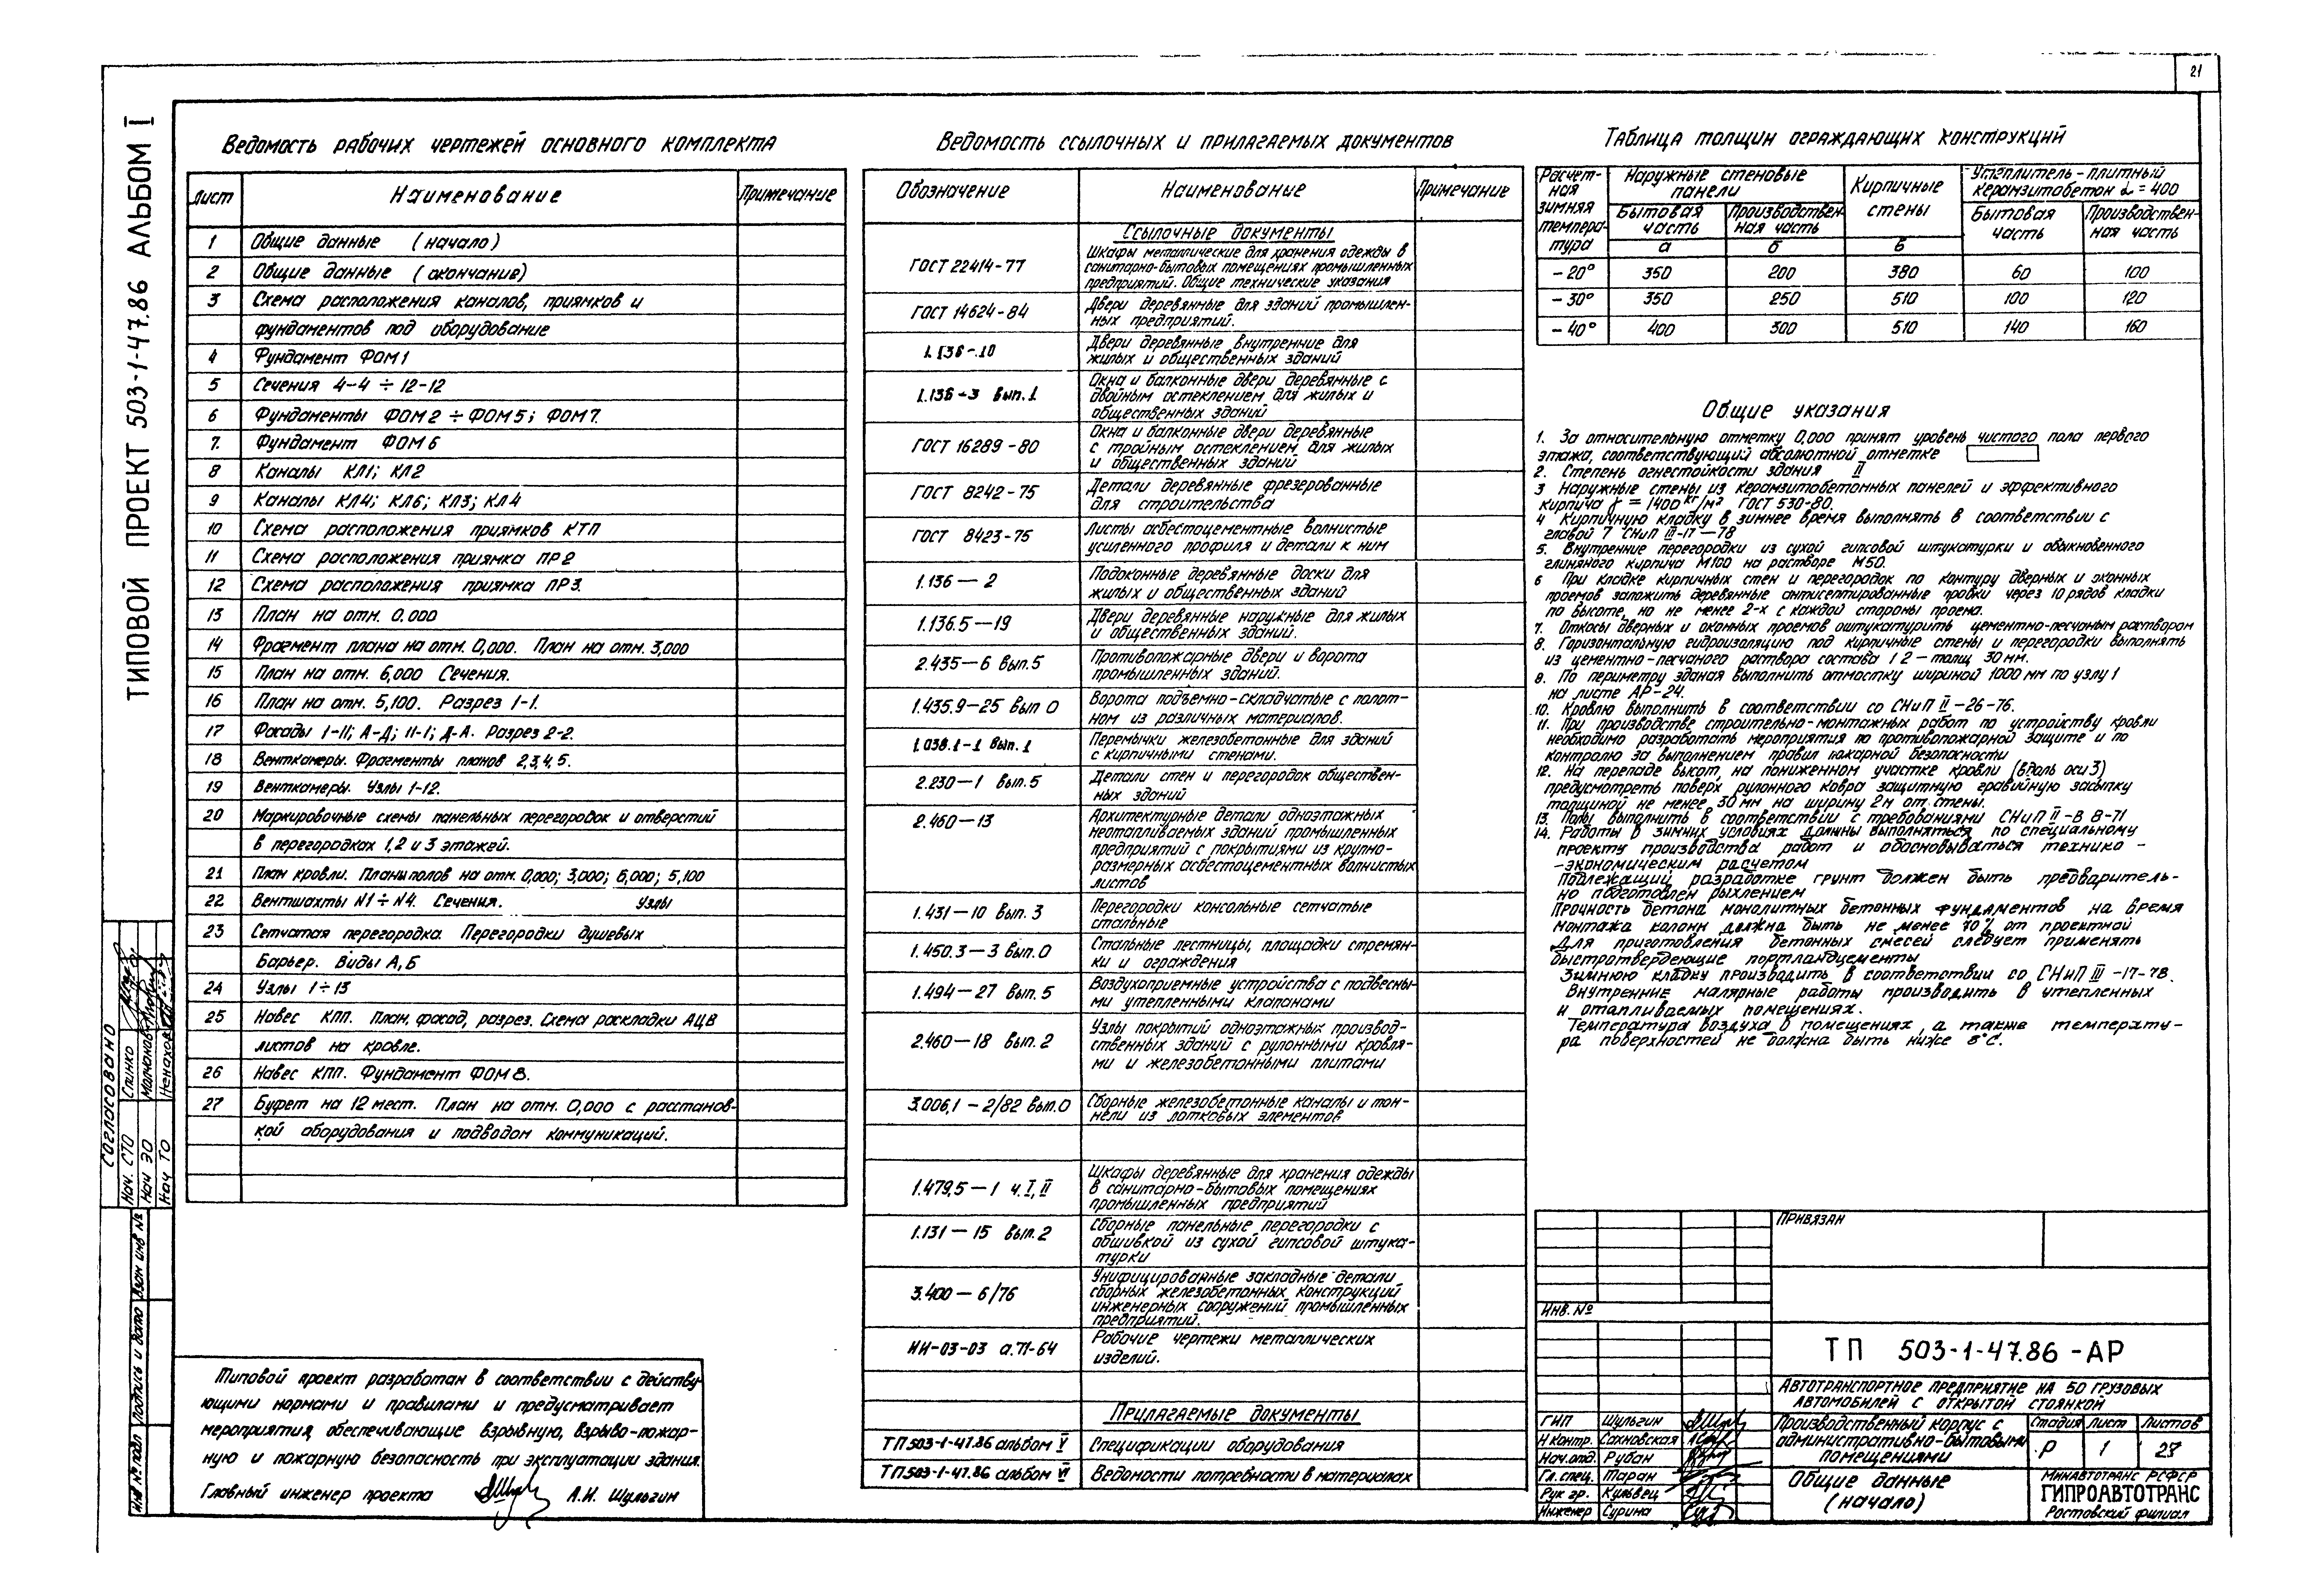 21
ТИПОВОЙ ПРОЕКТ 503-1-47.86 АЛЬБОМ I
Ведомость рабочих чертежей основного комплекта
Лист Наименование Примечание
1 Общие данные (начало)
2 Общие данные (окончание)
3 Схема расположения каналов, приямков и
фундаментов под оборудование
4 Фундамент ФОМ1
5 Сечения 4-4 ÷ 12-12
6 Фундаменты ФОМ2 ÷ ФОМ5; ФОМ7.
7. Фундамент ФОМ6
8 Каналы КЛ1; КЛ2
9 Каналы КЛ4; КЛ6; КЛ3; КЛ4
10 Схема расположения приямков КТП
11 Схема расположения приямка ПР2
12 Схема расположения приямка ПР3.
13 План на отм. 0.000
14 Фрагмент плана на отм. 0,000. План на отм. 3,000
15 План на отм. 6,000 Сечения.
16 План на отм. 5,100. Разрез 1-1.
17 Фасады 1-11; А-Д; 11-1; Д-А. Разрез 2-2.
18 Венткамеры. Фрагменты планов 2,3,4,5.
19 Венткамеры. Узлы 1-12.
20 Маркировочные схемы панельных перегородок и отверстий
в перегородках 1,2 и 3 этажей.
21 План кровли. Планы полов на отм. 0,000; 3,000; 6,000; 5,100
22 Вентшахты N1 ÷ N4. Сечения. Узлы
23 Сетчатая перегородка. Перегородки душевых
Барьер. Виды А, Б
24 Узлы 1÷13
25 Навес КПП. План, фасад, разрез. Схема раскладки АЦВ
листов на кровле.
26 Навес КПП. Фундамент ФОМ 8.
27 Буфет на 12 мест. План на отм. 0,000 с расстанов-
кой оборудования и подводом коммуникаций.
Типовой проект разработан в соответствии с действу-
ющими нормами и правилами и предусматривает
мероприятия, обеспечивающие взрывную, взрыво-пожар-
ную и пожарную безопасность при эксплуатации здания.
Главный инженер проекта А.И. Шульгин
Ведомость ссылочных и прилагаемых документов
Обозначение Наименование Примечание
Ссылочные документы
ГОСТ 22414-77 Шкафы металлические для хранения одежды в
санитарно-бытовых помещениях промышленных
предприятий. Общие технические указания
ГОСТ 14624-84 Двери деревянные для зданий промышлен-
ных предприятий.
1.136-10 Двери деревянные внутренние для
жилых и общественных зданий
1.136-3 вып.1 Окна и балконные двери деревянные с
двойным остеклением для жилых и
общественных зданий
ГОСТ 16289-80 Окна и балконные двери деревянные
с тройным остеклением для жилых
и общественных зданий
ГОСТ 8242-75 Детали деревянные фрезерованные
для строительства
ГОСТ 8423-75 Листы асбестоцементные волнистые
усиленного профиля и детали к ним
1.136-2 Подоконные деревянные доски для
жилых и общественных зданий
1.136.5-19 Двери деревянные наружные для жилых
и общественных зданий.
2.435-6 вып.5 Противопожарные двери и ворота
промышленных зданий.
1.435.9-25 вып 0 Ворота подъемно-складчатые с полот-
ном из различных материалов.
1.038.1-1 вып.1 Перемычки железобетонные для зданий
с кирпичными стенами.
2.230-1 вып.5 Детали стен и перегородок обществен-
ных зданий
2.460-13 Архитектурные детали одноэтажных
неотапливаемых зданий промышленных
предприятий с покрытиями из крупно-
размерных асбестоцементных волнистых
листов
1.431-10 вып. 3 Перегородки консольные сетчатые
стальные
1.450.3-3 вып. 0 Стальные лестницы, площадки стремян-
ки и ограждения
1.494-27 вып. 5 Воздухоприемные устройства с подвесны-
ми утепленными клапанами
2.460-18 вып. 2 Узлы покрытий одноэтажных производ-
ственных зданий с рулонными кровля-
ми и железобетонными плитами
3.006.1-2/82 вып.0 Сборные железобетонные каналы и тон-
нели из лотковых элементов
1.479.5-1 ч. I, II Шкафы деревянные для хранения одежды
в санитарно-бытовых помещениях
промышленных предприятий
1.131-15 вып. 2 Сборные панельные перегородки с
обшивкой из сухой гипсовой штука-
турки
3.400-6/76 Унифицированные закладные детали
сборных железобетонных конструкций
инженерных сооружений промышленных
предприятий.
ИИ-03-03 а.71-64 Рабочие чертежи металлических
изделий.
Прилагаемые документы
ТП 503-1-47.86 альбом V Спецификации оборудования
ТП 503-1-47.86 альбом VI Ведомости потребности в материалах
Таблица толщин ограждающих конструкций
Расчет-
ная
зимняя
темпера-
тура
Наружные стеновые панели Кирпичные стены Утеплитель-плитный керамзитобетон = 400
Бытовая часть Производствен-ная часть Бытовая часть Производствен-ная часть
а б в
-20° 350 200 380 60 100
-30° 350 250 510 100 120
-40° 400 300 510 140 160
Общие указания
1. За относительную отметку 0,000 принят уровень чистого пола первого
этажа, соответствующий абсолютной отметке
2. Степень огнестойкости здания II
3 Наружные стены из керамзитобетонных панелей и эффективного
кирпича γ = 1400 кг/м³ ГОСТ 530-80.
4 Кирпичную кладку в зимнее время выполнять в соответствии с
главой 7 СНиП III-17-78
5. Внутренние перегородки из сухой гипсовой штукатурки и обыкновенного
глиняного кирпича М100 на растворе М50.
6 При кладке кирпичных стен и перегородок по контуру дверных и оконных
проемов заложить деревянные антисептированные пробки через 10 рядов кладки
по высоте, но не менее 2-х с каждой стороны проема.
7. Откосы дверных и оконных проемов оштукатурить цементно-песчаным раствором
8. Горизонтальную гидроизоляцию под кирпичные стены и перегородки выполнять
из цементно-песчаного раствора состава 1 2 - толщ 30 мм.
9. По периметру здания выполнить отмостку шириной 1000 мм по узлу 1
на листе АР-24.
10. Кровлю выполнить в соответствии со СНиП II-26-76.
11. При производстве строительно-монтажных работ по устройству кровли
необходимо разработать мероприятия по противопожарной защите и по
контролю за выполнением правил пожарной безопасности
12. На перепаде высот, на пониженном участке кровли (вдоль оси 3)
предусмотреть поверх рулонного ковра защитную гравийную засыпку
толщиной не менее 30 мм на ширину 2 м от стены.
13. Полы выполнить в соответствии с требованиями СНиП II-В 8-71
14. Работы в зимних условиях должны выполняться по специальному
проекту производства работ и обосновываться технико-
-экономическим расчетом
Подлежащий разработке грунт должен быть предваритель-
но подготовлен рыхлением
Прочность бетона монолитных бетонных фундаментов на время
монтажа колонн должна быть не менее 70% от проектной
Для приготовления бетонных смесей следует применять
быстротвердеющие портландцементы
Зимнюю кладку производить в соответствии со СНиП III-17-78.
Внутренние малярные работы производить в утепленных
и отапливаемых помещениях.
Температура воздуха в помещениях, а также температу-
ра поверхностей не должна быть ниже 8°С.
Привязан
Инв. №
ТП 503-1-47.86-АР
Автотранспортное предприятие на 50 грузовых
автомобилей с открытой стоянкой
ГИП Шульгин
Н контр. Сахновская
Нач.отд. Рубан
Гл. спец. Таран
Рук гр. Кульвец
Инженер Сурина
Производственный корпус с
административно-бытовыми
помещениями
Стадия Лист Листов
Р 1 27
Общие данные
(начало)
Минавтотранс РСФСР
ГИПРОАВТОТРАНС
Ростовский филиал
Согласовано
Нач. СТО Спинко
Нач ЭО
Нач ТО
Взам инв №
Подпись и дата
Инв № подл